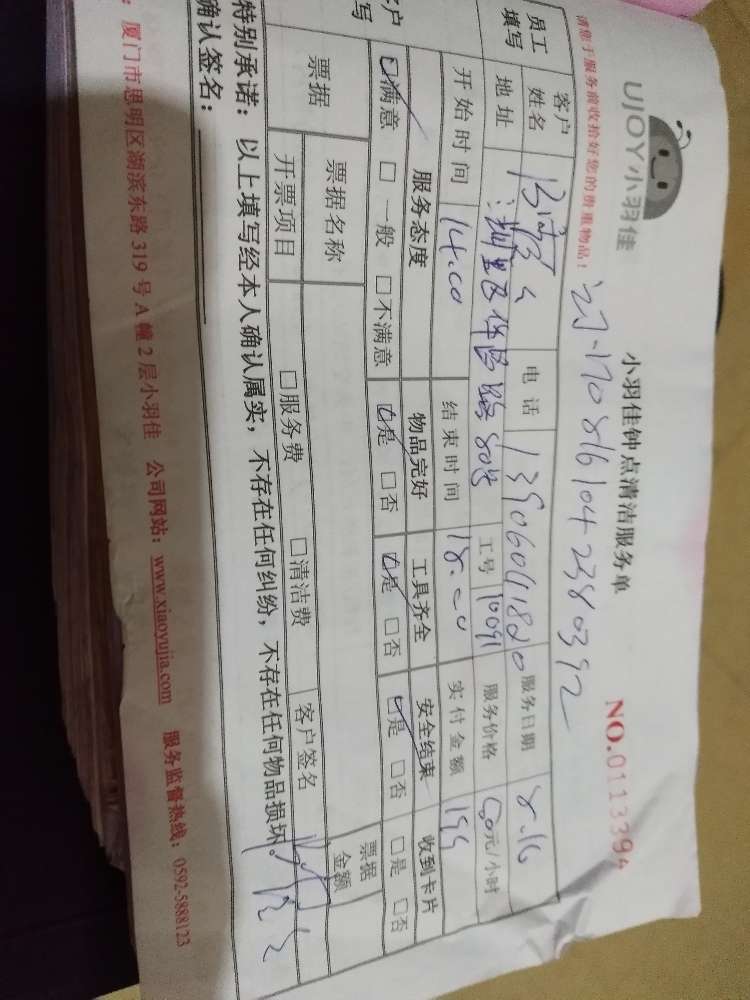 UJOY小羽佳
小羽佳钟点清洁服务单
NO.0113394
请您于服务前收拾好您的贵重物品!
员工填写
客户姓名
电话 13906041820
服务日期 8.16
地址
80号
工号 10091
服务价格 50元/小时
开始时间 14.00
结束时间 18.00
实付金额 199
客户
写
服务态度 物品完好 工具齐全 安全结束 收到卡片
☑满意 □一般 □不满意 ☑是 □否 ☑是 □否 ☑是 □否 □是 □否
票据 票据名称 票据金额
开票项目 □服务费 □清洁费 客户签名
特别承诺:以上填写经本人确认属实,不存在任何纠纷,不存在任何物品损坏。
确认签名:
厦门市思明区湖滨东路319号A幢2层小羽佳 公司网站:www.xiaoyujia.com 服务监督热线:0592-5888123